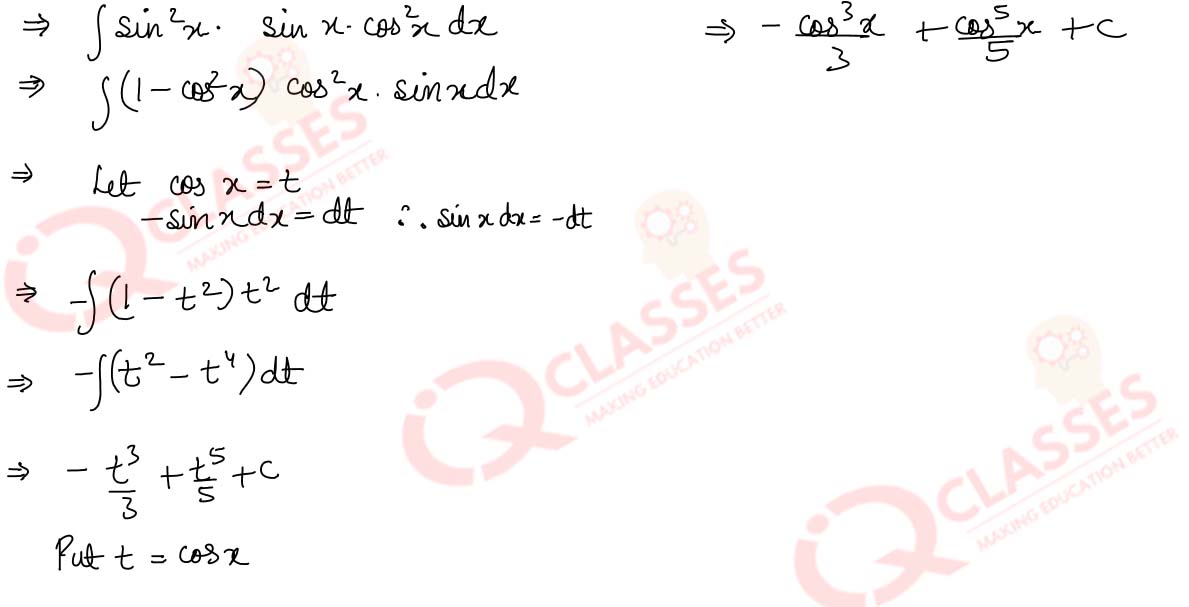 ⇒ ∫ sin²x · sin x · cos²x dx
⇒ ∫(1 − cos²x) cos²x · sinxdx
⇒ Let cos x = t
−sinxdx = dt ∴ sinxdx = −dt
⇒ −∫(1 − t²)t² dt
⇒ −∫(t² − t⁴)dt
⇒ − t³/3 + t⁵/5 + c
Put t = cosx
⇒ − cos³x/3 + cos⁵x/5 + c
QCLASSES
MAKING EDUCATION BETTER
QCLASSES
MAKING EDUCATION BETTER
QCLASSES
MAKING EDUCATION BETTER